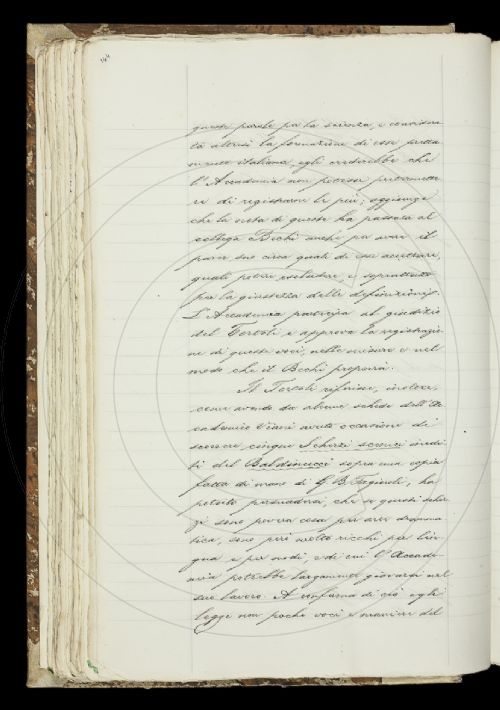 queste parole per la scienza, e considera
ta altresì la formazione di esse pretta
mente italiana, egli crederebbe che
l'Accademia non potesse pretermette
re di registrarne le più; aggiunge
che la nota di queste ha passata al
collega Bechi anche per avere il
parer suo circa quali di esse accettare,
quali potere escludere e soprattutto
per la giustezza delle definizioni.
L'Accademia partecipa al giudizio
del Tortoli e approva la registrazio
ne di queste voci, nella misura e nel
modo che il Bechi proporrà.
Il Tortoli riferisce, inoltre,
come avendo da alcune schede dell'Ac
cademico Viani avuto occasione di
scorrere cinque Scherzi scenici inedi
ti del Baldinucci sopra una copia
fatta di mano di G. B. Fagiuoli, ha
potuto persuadersi, che se questi scher
zi sono povera cosa per arte dramma
tica, sono però molto ricchi per lin
gua e per modi, e di cui l'Accade
mia potrebbe largamente giovarsi nel
suo lavoro. A conferma di ciò egli
legge non poche voci e maniere del